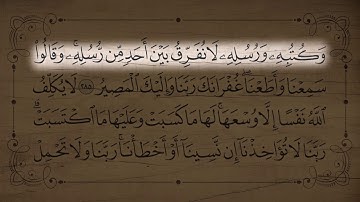 وَكُتُبِهِۦ وَرُسُلِهِۦ لَا نُفَرِّقُ بَيْنَ أَحَدٍ مِّن رُّسُلِهِۦۚ وَقَالُوا۟
سَمِعْنَا وَأَطَعْنَاۖ غُفْرَانَكَ رَبَّنَا وَإِلَيْكَ ٱلْمَصِيرُ ٢٨٥ لَا يُكَلِّفُ
ٱللَّهُ نَفْسًا إِلَّا وُسْعَهَاۚ لَهَا مَا كَسَبَتْ وَعَلَيْهَا مَا ٱكْتَسَبَتْۗ
رَبَّنَا لَا تُؤَاخِذْنَآ إِن نَّسِينَآ أَوْ أَخْطَأْنَاۚ رَبَّنَا وَلَا تَحْمِلْ